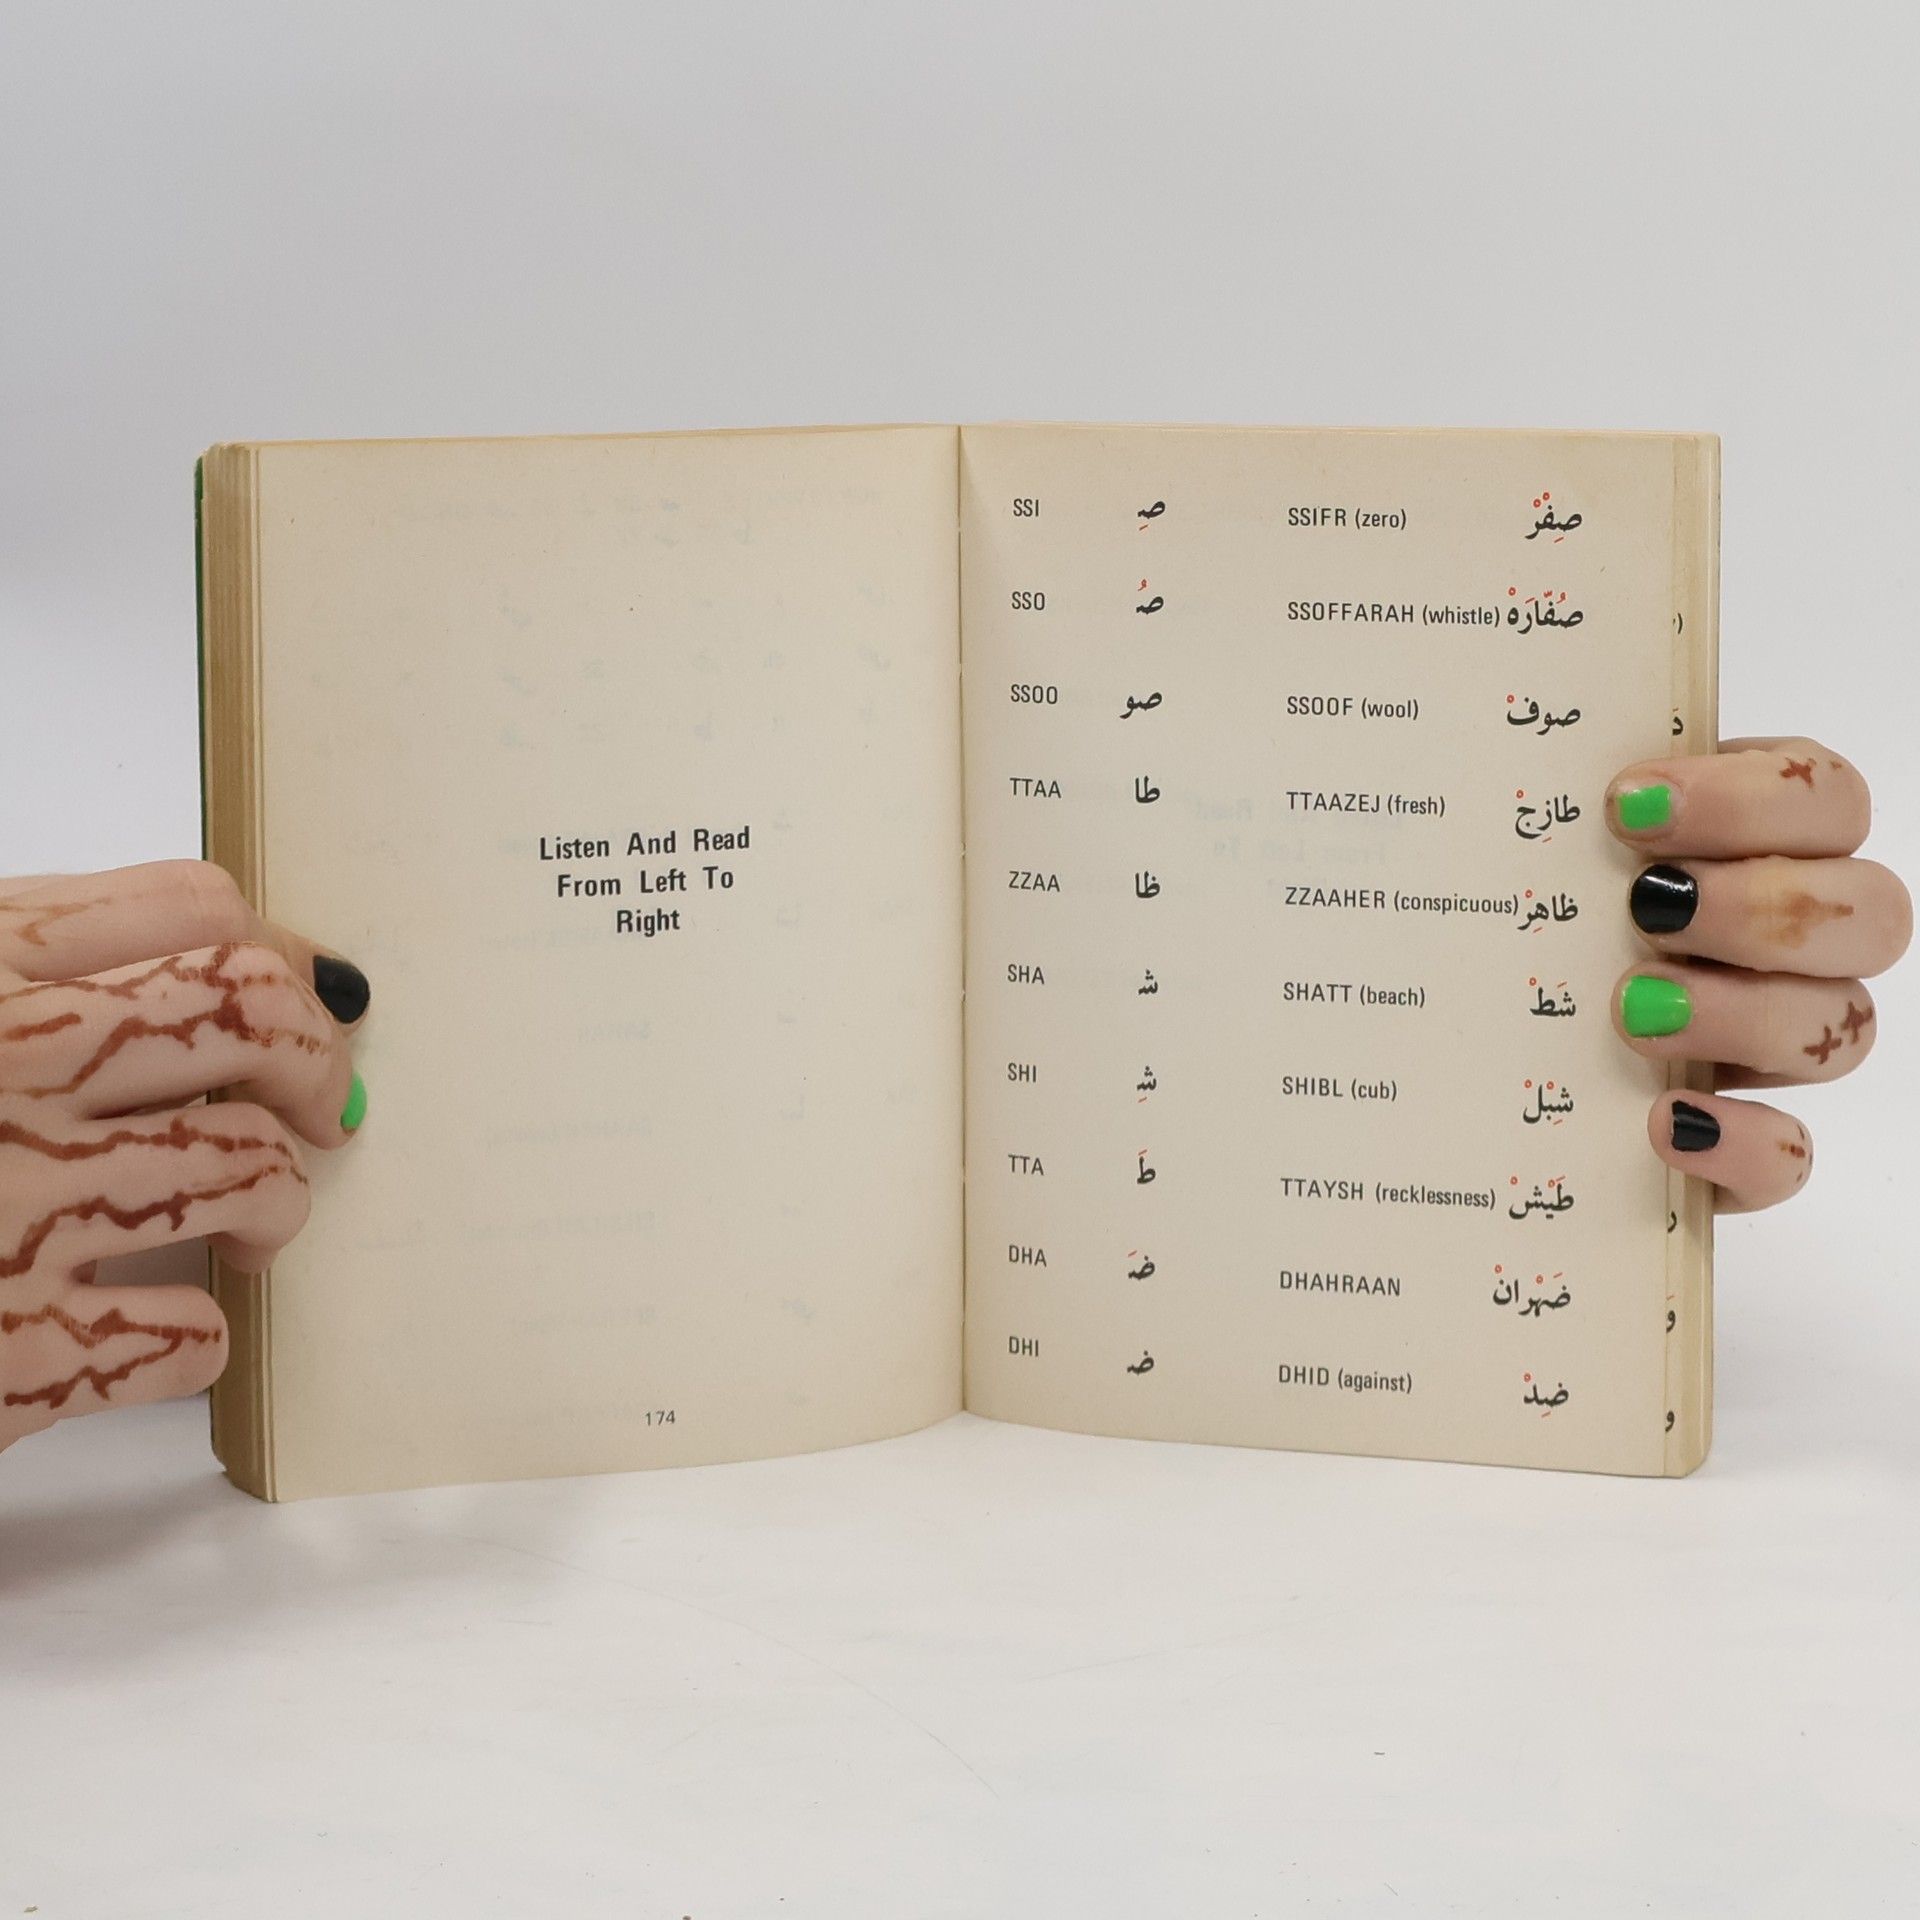 Listen And Read
From Left To
Right
174
SSI صِ SSIFR (zero) صِفْرْ
SSO صُ SSOFFARAH (whistle) صُفّارَهْ
SSOO صو SSOOF (wool) صوفْ
TTAA طا TTAAZEJ (fresh) طازِجْ
ZZAA ظا ZZAAHER (conspicuous) ظاهِرْ
SHA شـ SHATT (beach) شَطْ
SHI شِـ SHIBL (cub) شِبْلْ
TTA طَ TTAYSH (recklessness) طَيْشْ
DHA ضَـ DHAHRAAN ضَهْرانْ
DHI ضـ DHID (against) ضِدْ